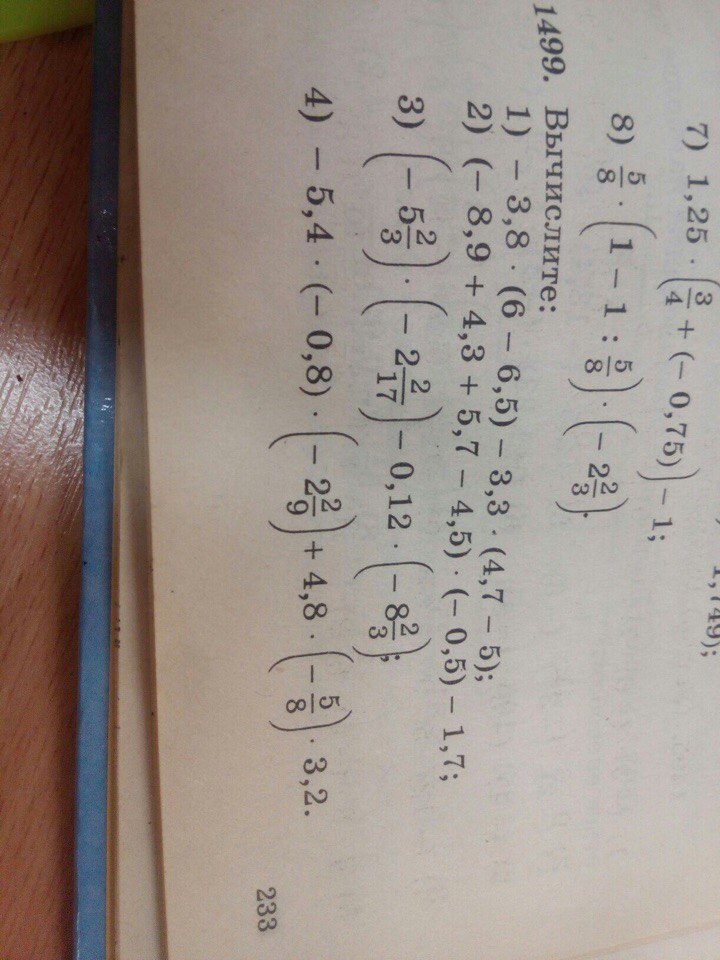 1,749);
7) 1,25 · (3/4 + (− 0,75)) − 1;
8) 5/8 · (1 − 1 : 5/8) · (− 2 2/3).
1499. Вычислите:
1) − 3,8 · (6 − 6,5) − 3,3 · (4,7 − 5);
2) (− 8,9 + 4,3 + 5,7 − 4,5) · (− 0,5) − 1,7;
3) (− 5 2/3) · (− 2 2/17) − 0,12 · (− 8 2/3);
4) − 5,4 · (− 0,8) · (− 2 2/9) + 4,8 · (− 5/8) · 3,2.
233